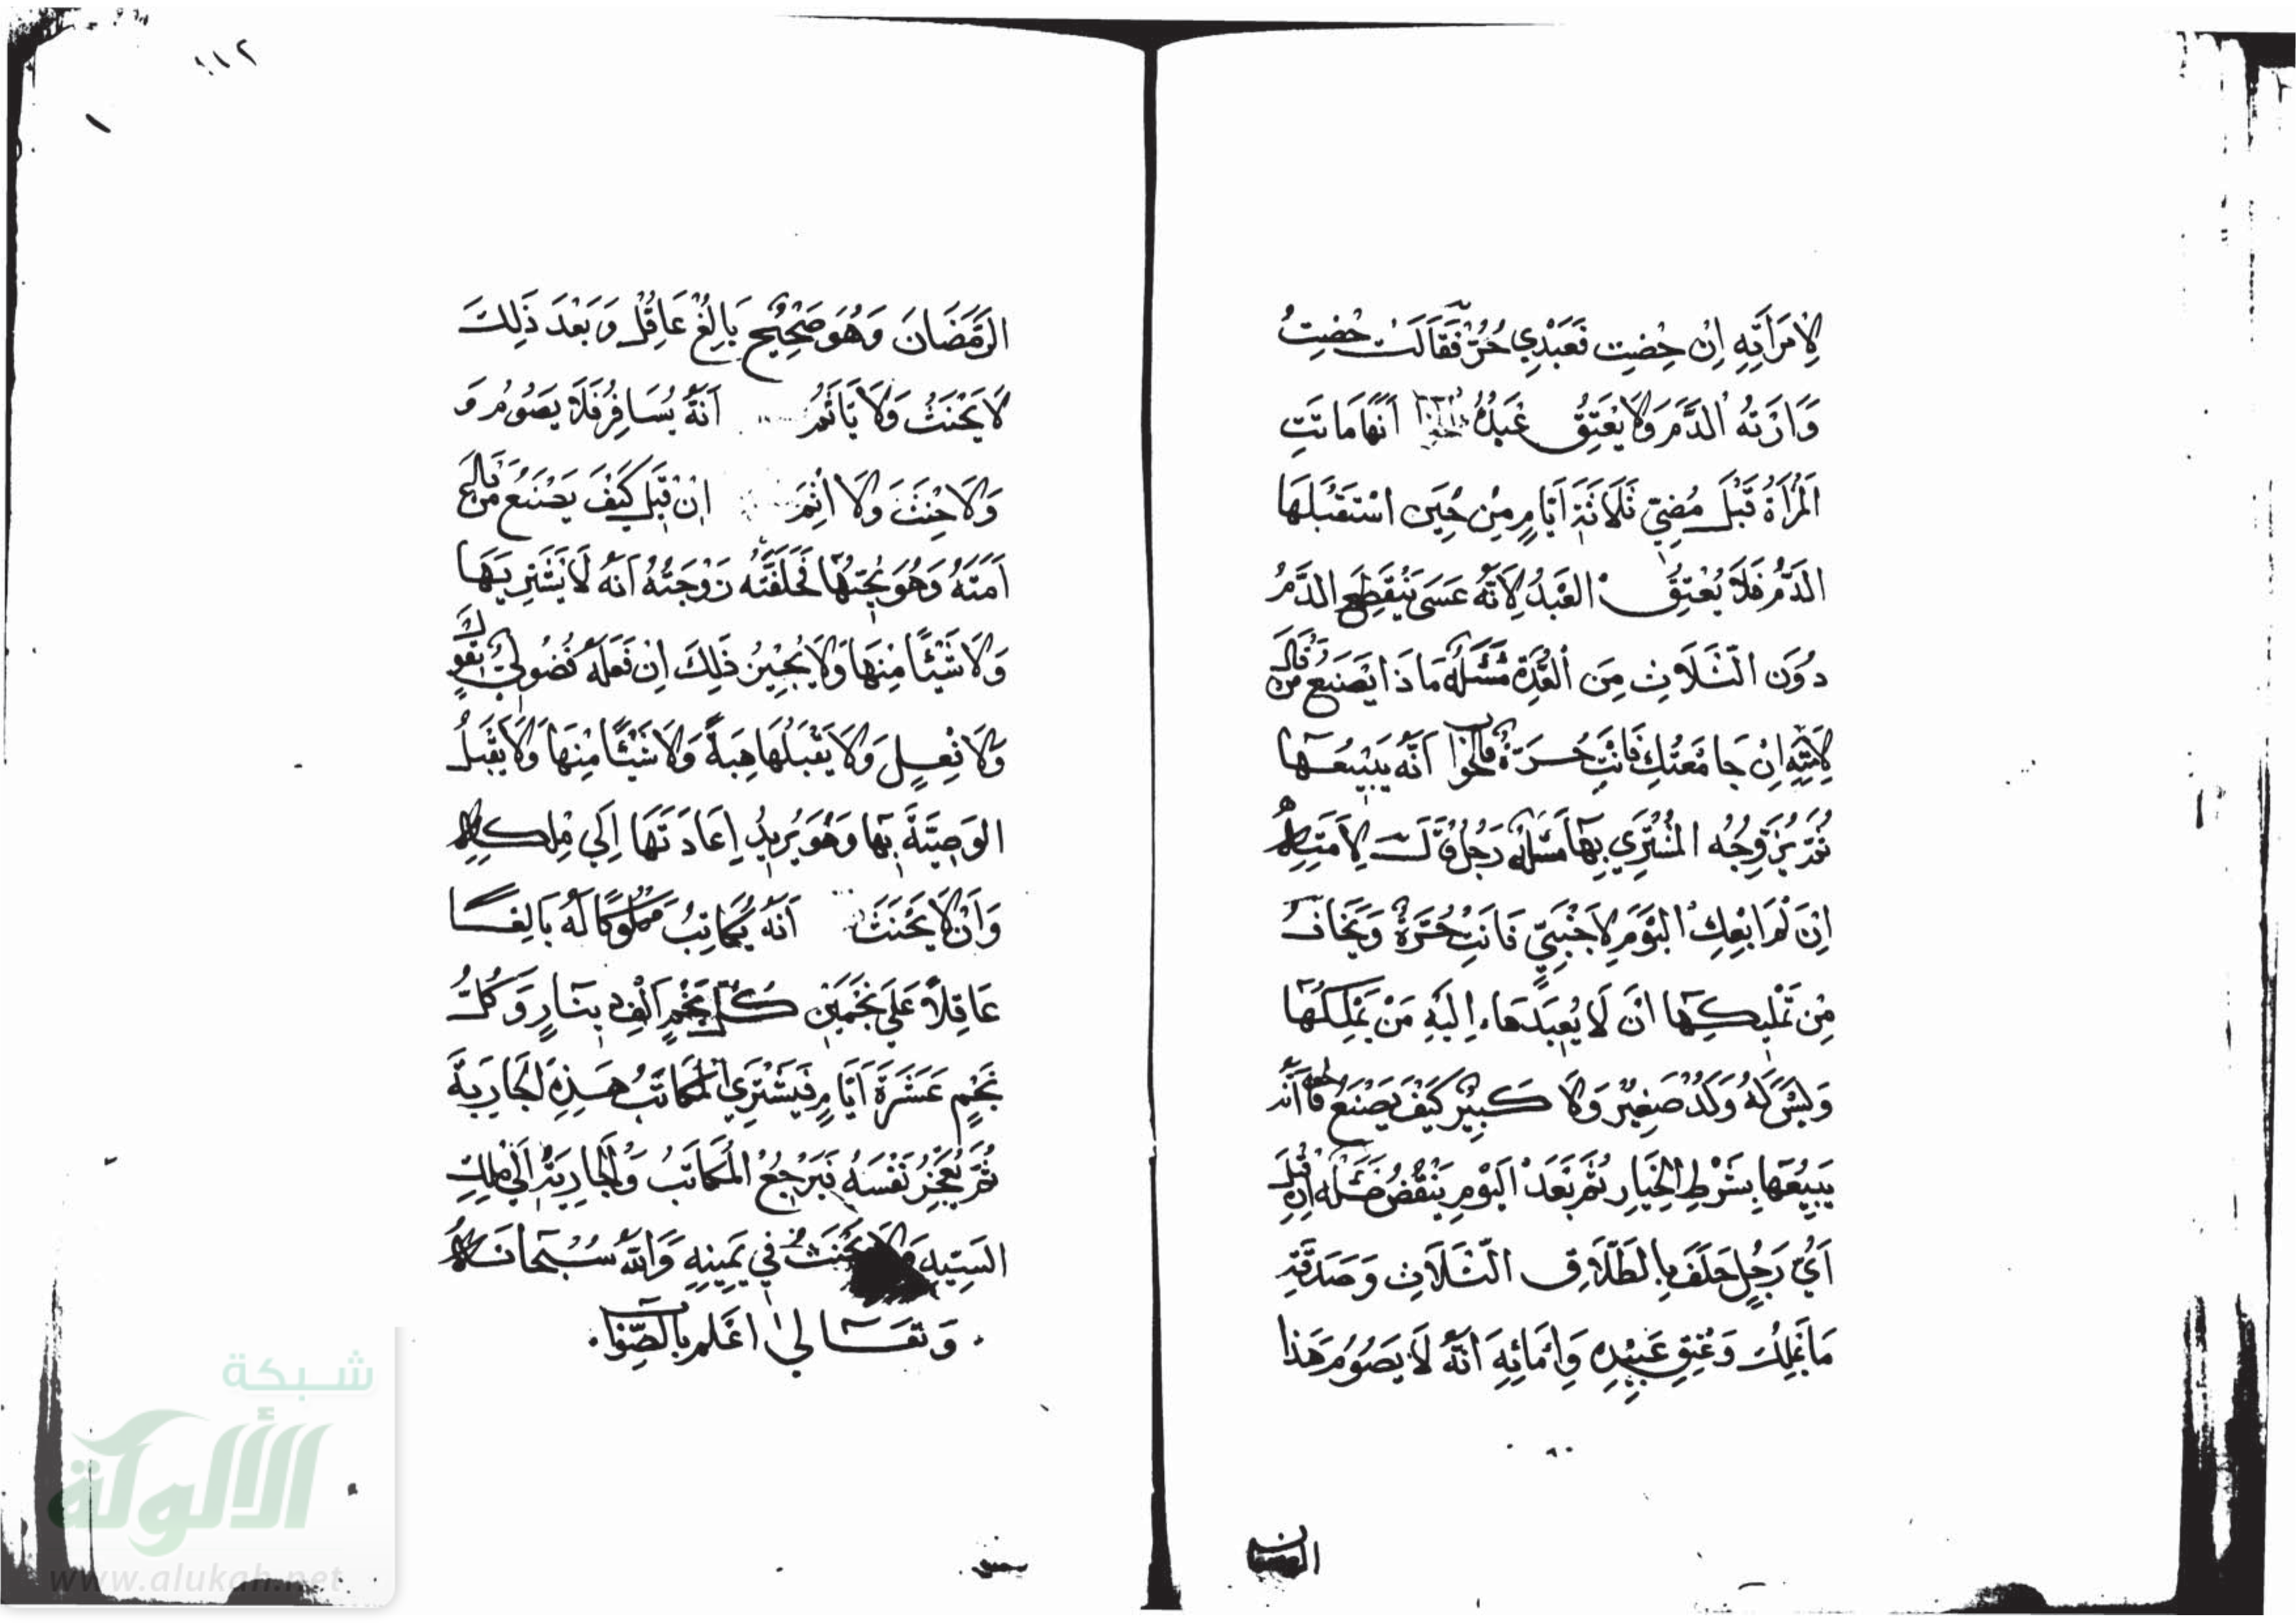 لِامْرَأَتِهِ اِنْ حِضْتِ فَعَبْدِي حُرٌّ فَقَالَتْ حِضْتُ
وَاَرَتْهُ الدَّمَ وَلَا يُعْتِقُ عَبْدُهُ اَنَّهَا مَاتَتِ
الْمَرْاَةُ قَبْلَ مُضِيِّ ثَلَاثَةِ اَيَّامٍ مِنْ حِينِ اسْتَقْبَلَهَا
الدَّمُ فَلَا يُعْتِقُ الْعَبْدُ لِاَنَّهُ عَسَى يَنْقَطِعُ الدَّمُ
دُونَ الثَّلَاثِ مِنَ الْعِدَّةِ مَسْئَلَةٌ مَاذَا يَصْنَعُ مَنْ قَالَ
لِاَمَتِهِ اِنْ جَامَعْتُكِ فَاَنْتِ حُرَّةٌ فَالْجَوَابُ اَنَّهُ يَبِيعُهَا
ثُمَّ يُزَوِّجُهُ الْمُشْتَرِي بِهَا مَسْئَلَةٌ رَجُلٌ قَالَ لِاَمَتِهِ
اِنْ لَمْ اَبِعْكِ الْيَوْمَ لِاَجْنَبِيٍّ فَاَنْتِ حُرَّةٌ وَيَخَافُ
مِنْ تَمْلِيكِهَا اَنْ لَا يُعِيدَهَا اِلَيْهِ مَنْ يَمْلِكُهَا
وَلَيْسَ لَهُ وَلَدٌ صَغِيرٌ وَلَا كَبِيرٌ كَيْفَ يَصْنَعُ فَالْجَوَابُ اَنَّهُ
يَبِيعُهَا بِشَرْطِ الْخِيَارِ ثُمَّ بَعْدَ الْيَوْمِ يَنْقُضُ مَسْئَلَة اِنْ قِيلَ
اَيُّ رَجُلٍ حَلَفَ بِالطَّلَاقِ الثَّلَاثِ وَصَدَقَةِ
مَا يَمْلِكُ وَعِتْقِ عَبِيدِهِ وَاِمَائِهِ اَنَّهُ لَا يَصُومُ هَذَا
الرَّمَضَانَ وَهُوَ صَحِيحٌ بَالِغٌ عَاقِلٌ وَبَعْدَ ذَلِكَ
لَا يَحْنَثُ وَلَا يَأْثَمُ اَنَّهُ يُسَافِرُ فَلَا يَصُومُ وَ
وَلَا حِنْثَ وَلَا اِثْمَ اِنْ قِيلَ كَيْفَ يَصْنَعُ مَنْ بَاعَ
اَمَتَهُ وَهُوَ يُحِبُّهَا فَحَلَّفَتْهُ زَوْجَتُهُ اَنَّهُ لَا يَشْتَرِيهَا
وَلَا شَيْئًا مِنْهَا وَلَا يُجِيزُ ذَلِكَ اِنْ فَعَلَهُ فُضُولِيٌّ بِقَوْلٍ
وَلَا فِعْلٍ وَلَا يَقْبَلُهَا هِبَةً وَلَا شَيْئًا مِنْهَا وَلَا يَقْبَلُ
الْوَصِيَّةَ بِهَا وَهُوَ يُرِيدُ اِعَادَتَهَا اِلَى مِلْكِهِ
وَاَنْ لَا يَحْنَثَ اَنَّهُ يُكَاتِبُ مَمْلُوكًا لَهُ بَالِغًا
عَاقِلًا عَلَى نَجْمَيْنِ كُلُّ نَجْمٍ اَلْفُ دِينَارٍ وَكُلُّ
نَجْمٍ عَشَرَةُ اَيَّامٍ فَيَشْتَرِي الْمُكَاتَبُ هَذِهِ الْجَارِيَةَ
ثُمَّ يُعَجِّزُ نَفْسَهُ فَيَرْجِعُ الْمُكَاتَبُ وَالْجَارِيَةُ اِلَى مِلْكِ
السَّيِّدِ وَلَا يَحْنَثُ فِي يَمِينِهِ وَاللّٰهُ سُبْحَانَهُ
وَتَعَالَى اَعْلَمُ بِالصَّوَابِ
شبكة
الألوكة
www.alukah.net